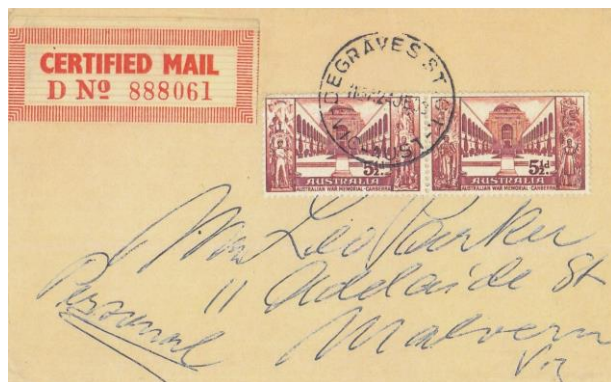 CERTIFIED MAIL
D Nº 888061
DEGRAVES ST
VIC-AUST
5½d.
AUSTRALIA
AUSTRALIAN WAR MEMORIAL-CANBERRA
5½d.
AUSTRALIA
AUSTRALIAN WAR MEMORIAL-CANBERRA
Mrs Leo Parker
11 Adelaide St
Malvern
Vic
Personal